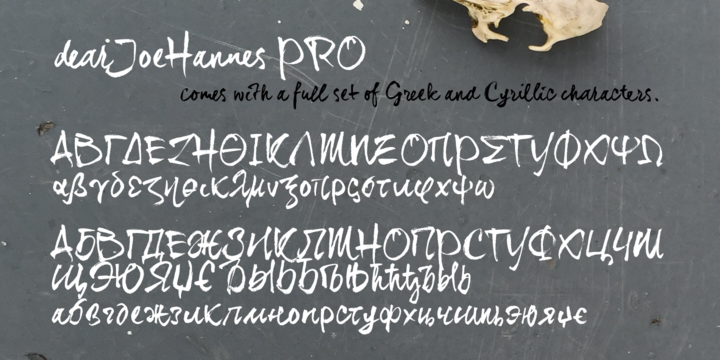 dearJoeHannes PRO
comes with a full set of Greek and Cyrillic characters.
ΑΒΓΔΕΖΗΘΙΚΛΜΝΞΟΠΡΣΤΥΦΧΨΩ
αβγδεζηθικλμνξοπρςστυφχψω
АБВГДЕЖЗИКЛМНОПРСТУФХЦЧШ
абвгдежзиклмнопрстуфхцчшщьэюяџє